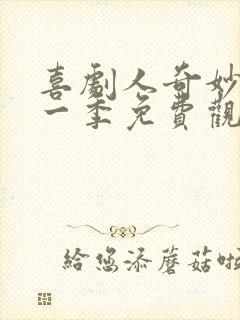 喜劇人奇妙
一季免費觀
給您添蘑菇啦